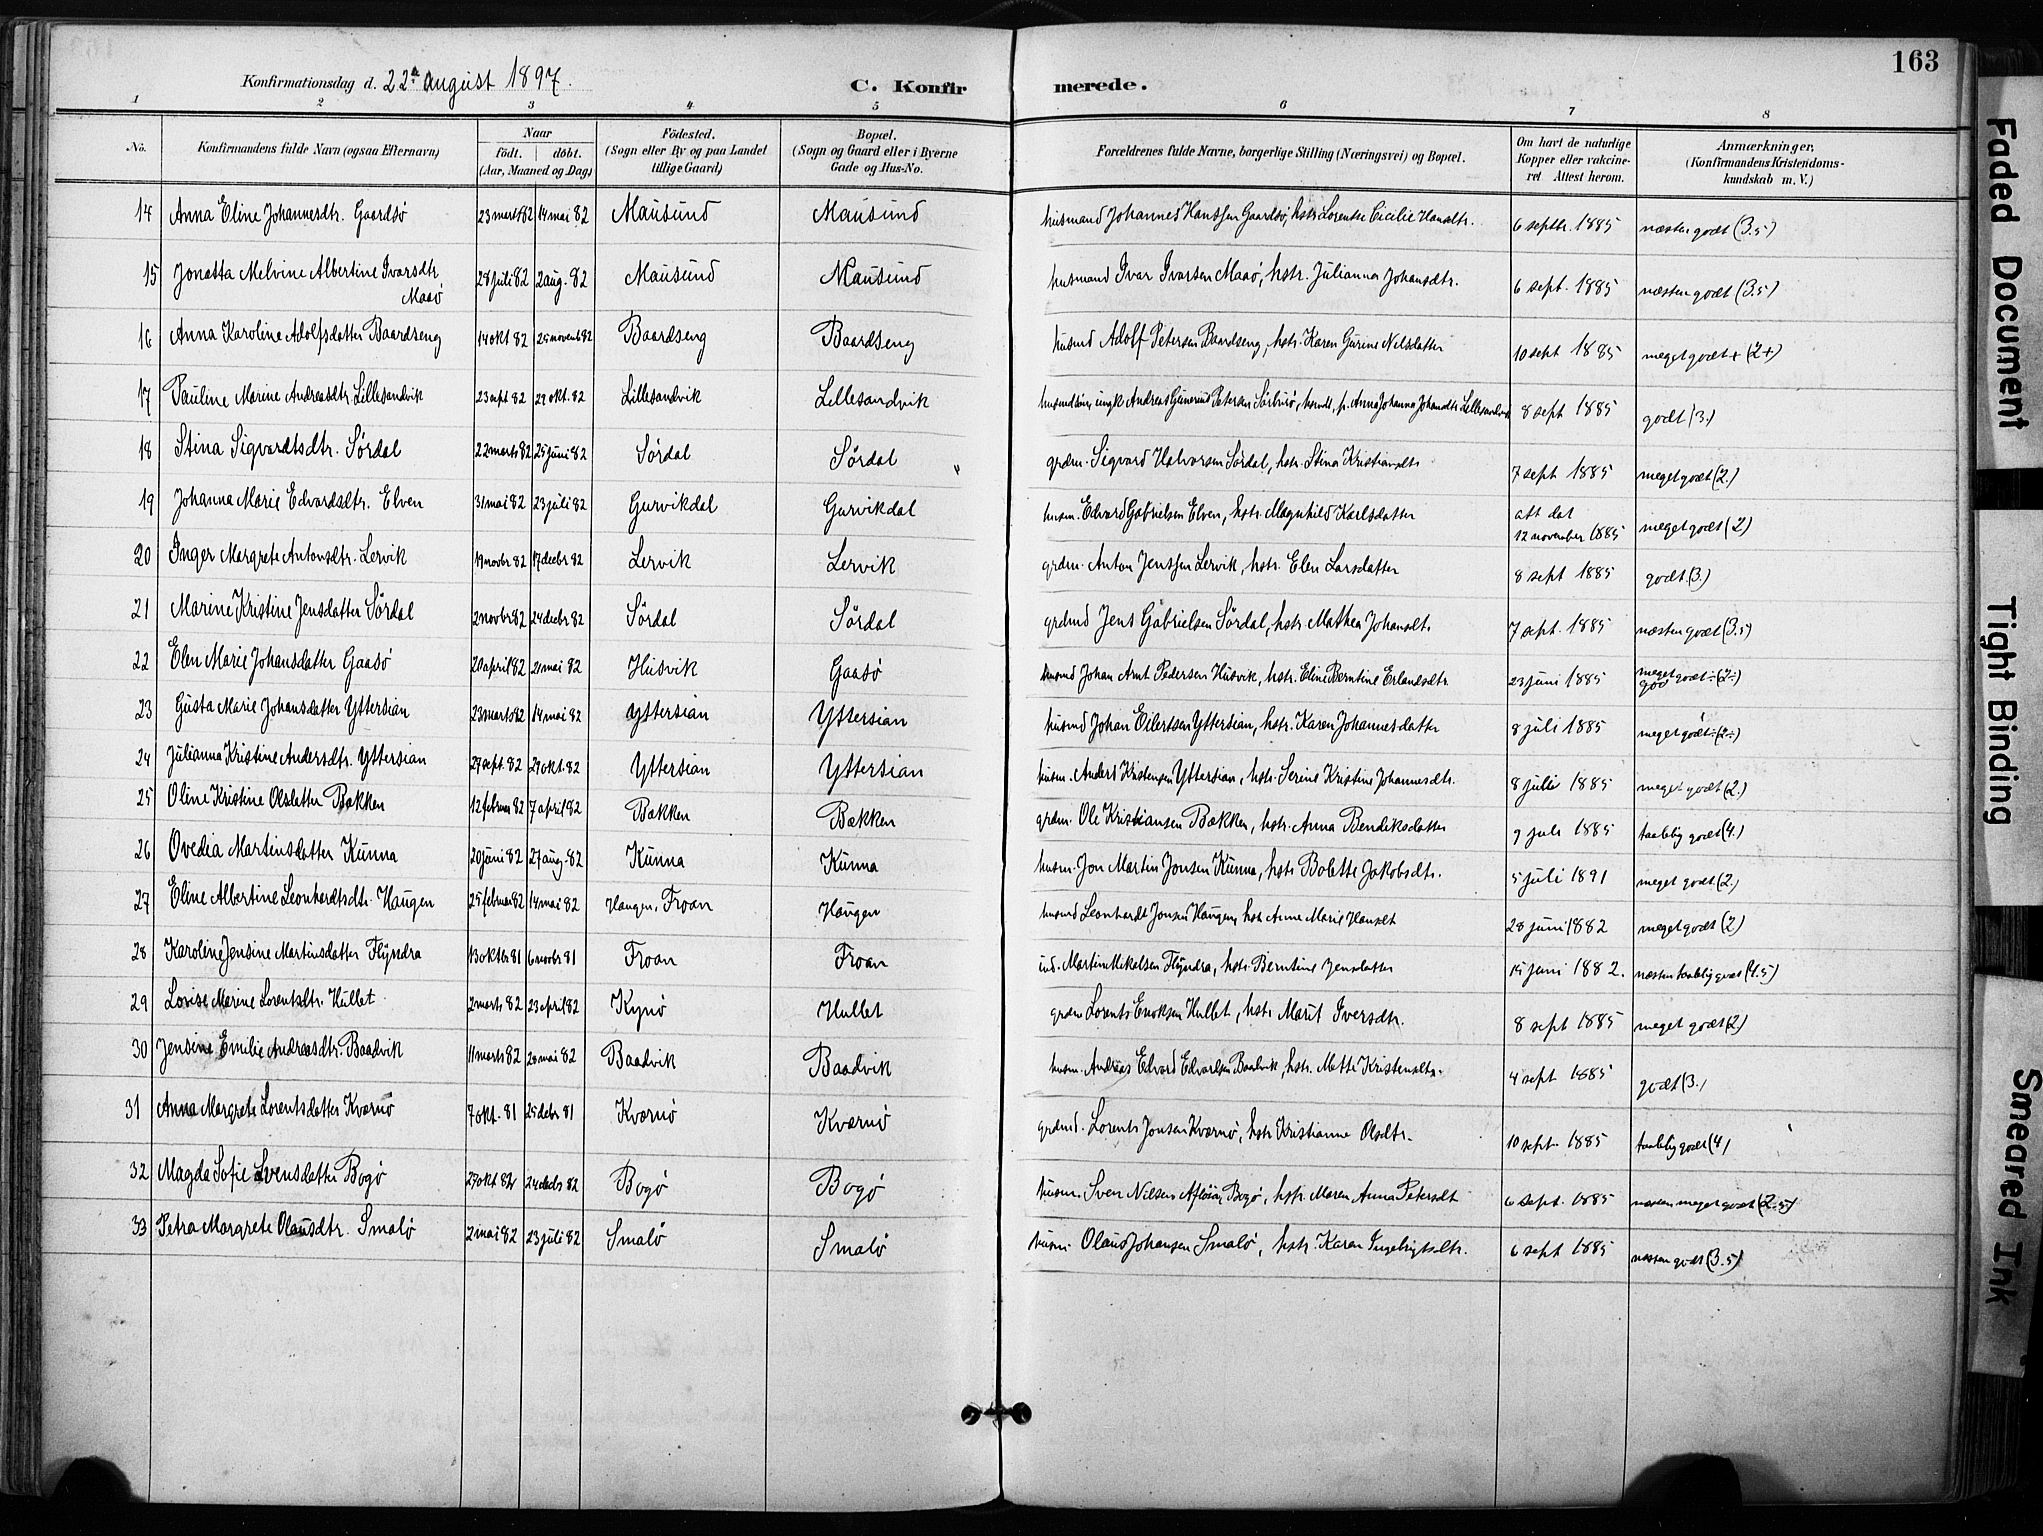 163
Konfirmationsdag d. 22de august 1897.
C. Konfirmerede.
1 2 3 4 5 6 7 8
No. Konfirmandens fulde Navn (ogsaa Efternavn) Naar født. døbt. (Aar, Maaned og Dag) Fødested. (Sogn eller By og paa Landet tillige Gaard) Bopæl. (Sogn og Gaard eller i Byerne Gade og Hus-No. Forældrenes fulde Navne, borgerlige Stilling (Næringsvei) og Bopæl. Om havt de naturlige Kopper eller vakcineret Attest herom. Anmærkninger. (Konfirmandens Kristendomskundskab m. V.)
14 Anna Eline Johannesdtr. Gaardsø 23 marts 82 14 mai 82 Mausund Mausund husmand Johannes Hanssen Gaardsø, hstr. Lorentse Cicilie Hansdtr. 6 septbr. 1885 næsten godt (3.5)
15 Jonetta Melvine Albertine Ivarsdtr 28 juli 82 2 aug. 82 Mausund Mausund husmand Ivar Ivarsen Maasø, hstr. Julianna Johansdtr. 6 sept. 1885 næsten godt (3.5)
Maasø
16 Anna Karoline Adolfsdatter Baardseng 14 okt 82 25 novemb 82 Baardseng Baardseng husmd Adolf Petersen Baardseng, hstr. Karen Gurine Nilsdatter 10 sept 1885 meget godt + (2+)
17 Pauline Marine Andreasdtr. Lillesandvik 23 sept 82 29 okt. 82 Lillesandvik Lillesandvik ungk Andreas Petersen Anna Johanna Johansdtr Lillesandvik 8 sept 1885 godt (3.)
18 Stina Sigvardtsdtr. Sørdal 22 marts 82 25 juni 82 Sørdal Sørdal " grdm. Sigvard Halvorsen Sørdal, hstr. Stina Kristiansdtr 7 sept 1885 meget godt (2.)
19 Johanna Marie Edvardsdtr. Elven 31 mai 82 23 juli 82 Gurvikdal Gurvikdal husm. Edvard Gabrielsen Elven, hstr. Magnhild Karlsdatter att dat 12 november 1885 meget godt (2)
20 Inger Margrete Antonsdtr. Lervik 19 novbr 82 17 decbr 82 Lervik Lervik grdm. Anton Jenssen Lervik, hstr. Elen Larsdatter 8 sept 1885 godt (3.)
21 Marine Kristine Jensdatter Sørdal 2 novbr 82 24 decbr 82 Sørdal Sørdal grdmd Jens Gabrielsen Sørdal, hstr. Mathea Johansdtr. 7 sept. 1885 næsten godt (3.5)
22 Elen Marie Johansdatter Gaasø 20 april 82 21 mai 82 Husvik Gaasø husmd Johan Arnt Pedersen Husvik, hstr. Eline Berntine Erlandsdtr. 23 juni 1885 meget godt ÷ (2÷)
god
23 Gusta Marie Johansdatter Yttersian 23 marts 82 14 mai 82 Yttersian Yttersian husmd Johan Eilertsen Yttersian, hstr. Karen Johannesdatter 8 juli 1885 meget godt ÷ (2÷)
24 Julianna Kristine Andersdtr. Yttersian 27 sept. 82 29 okt. 82 Yttersian Yttersian husm. Anders Kristensen Yttersian, hstr. Serine Kristine Johannesdtr. 8 juli 1885 meget godt (2.)
25 Oline Kristine Olsdatter Bakken 12 februar 82 7 april 82 Bakken Bakken grdm. Ole Kristiansen Bakken, hstr. Anna Bendiksdatter 9 juli 1885 taalelig godt (4.)
26 Ovedia Martinsdatter Kunna 20 juni 82 27 aug. 82 Kunna Kunna husm. Jon Martin Jonsen Kunna, hstr Bolette Jakobsdtr. 5 juli 1891 meget godt (2.)
27 Eline Albertine Leonhardtsdtr. Haugen 25 februar 82 14 mai 82 Haugen, Froan Haugen husmd Leonhardt Jonsen Haugen, hstr Anne Marie Hansdt 28 juni 1882 meget godt (2)
28 Karoline Jensine Martinsdatter Flyndra 13 oktbr 81 6 novbr 81 Froan Froan ind. Martin Mikalsen Flyndra, hstr. Berntine Jensdatter 15 juni 1882. næsten taalelig godt (4.5)
29 Lovise Marine Lorentsdtr. Hullet 2 marts 82 23 april 82 Kynø Hullet grdm Lorents Enoksen Hullet, hstr Marit Iversdtr. 8 sept 1885 meget godt (2)
30 Jensine Emilie Andreasdtr. Baadvik 11 marts 82 20 mai 82 Baadvik Baadvik husm. Andreas Edvard Edvardsen Baadvik, hstr. Mette Kristensdtr. 4 sept 1885 godt (3.)
31 Anna Margrete Lorentsdatter Kværnø 7 okt. 81 25 debr 81 Kværnø Kværnø grdmd. Lorents Jonsen Kværnø, hstr Kristianne Olsdtr. 10 sept. 1885 taalelig godt (4)
32 Magda Sofie Svensdatter Bogø 27 okt 82 24 decbr 82 Bogø Bogø husm. Sven Nilsen Bogø, hstr. Maren Anna Petersdt 6 sept. 1885 næsten meget godt (2.5)
33 Petra Margrete Olausdtr. Smalø 2 mai 82 23 juli 82 Smalø Smalø husm. Olaus Johansen Smalø, hstr. Karen Ingebrigtsdtr. 6 sept 1885 næsten godt (3.5)
Faded Document
Tight Binding
Smeared Ink